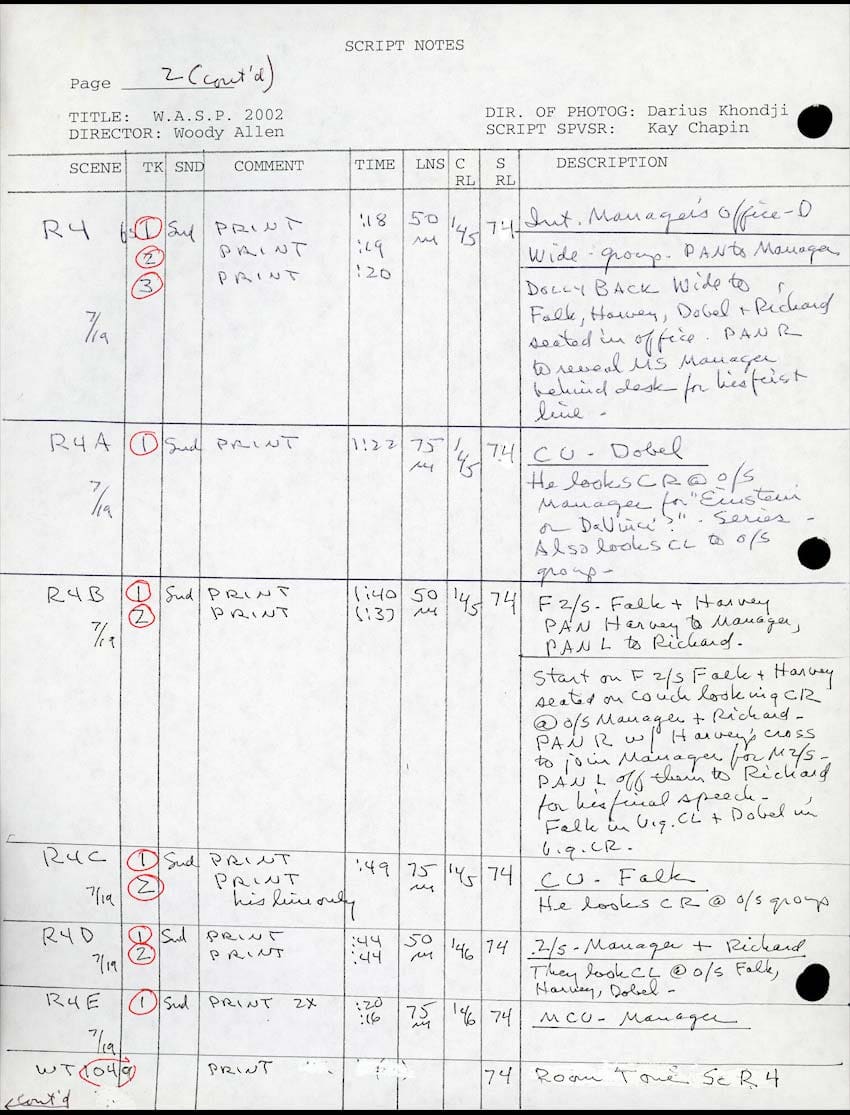 SCRIPT NOTES
Page 2 (cont'd)
TITLE: W.A.S.P. 2002
DIRECTOR: Woody Allen
DIR. OF PHOTOG: Darius Khondji
SCRIPT SPVSR: Kay Chapin
SCENE TK SND COMMENT TIME LNS C RL S RL DESCRIPTION
R4 1 Snd PRINT :18 50 145 74 Int. Manager's Office - D
2 PRINT :19 Wide - group. PAN to Manager
3 PRINT :20
7/19
DOLLY BACK Wide to
Falk, Harvey, Dobel + Richard
seated in office. PAN R
to reveal MS Manager
behind desk for his first
line -
R4A 1 Snd PRINT 1:22 75 145 74 CU - Dobel
7/19
He looks CR @ o/s
Manager for "Einstein
or DaVinci?" - Series -
Also looks CL to o/s
group -
R4B 1 Snd PRINT 1:40 50 145 74 F 2/s - Falk + Harvey
2 PRINT 1:37 PAN Harvey to Manager,
7/19 PAN L to Richard.
Start on F 2/s Falk + Harvey
seated on couch looking CR
@ o/s Manager + Richard -
PAN R w/ Harvey's cross
to join Manager for M2/s -
PAN L off them to Richard
for his final speech -
Falk in b.g. CL + Dobel in
b.g. CR.
R4C 1 Snd PRINT :49 75 145 74 CU - Falk
2 PRINT
7/19 his line only He looks CR @ o/s group
R4D 1 Snd PRINT :44 50 146 74 2/s - Manager + Richard
2 PRINT :44
7/19 They look CL @ o/s Falk,
Harvey, Dobel -
R4E 1 Snd PRINT 2X :20 75 146 74 MCU - Manager
:16
7/19
WT 1049 PRINT 74 Room Tone Sc R4
cont'd